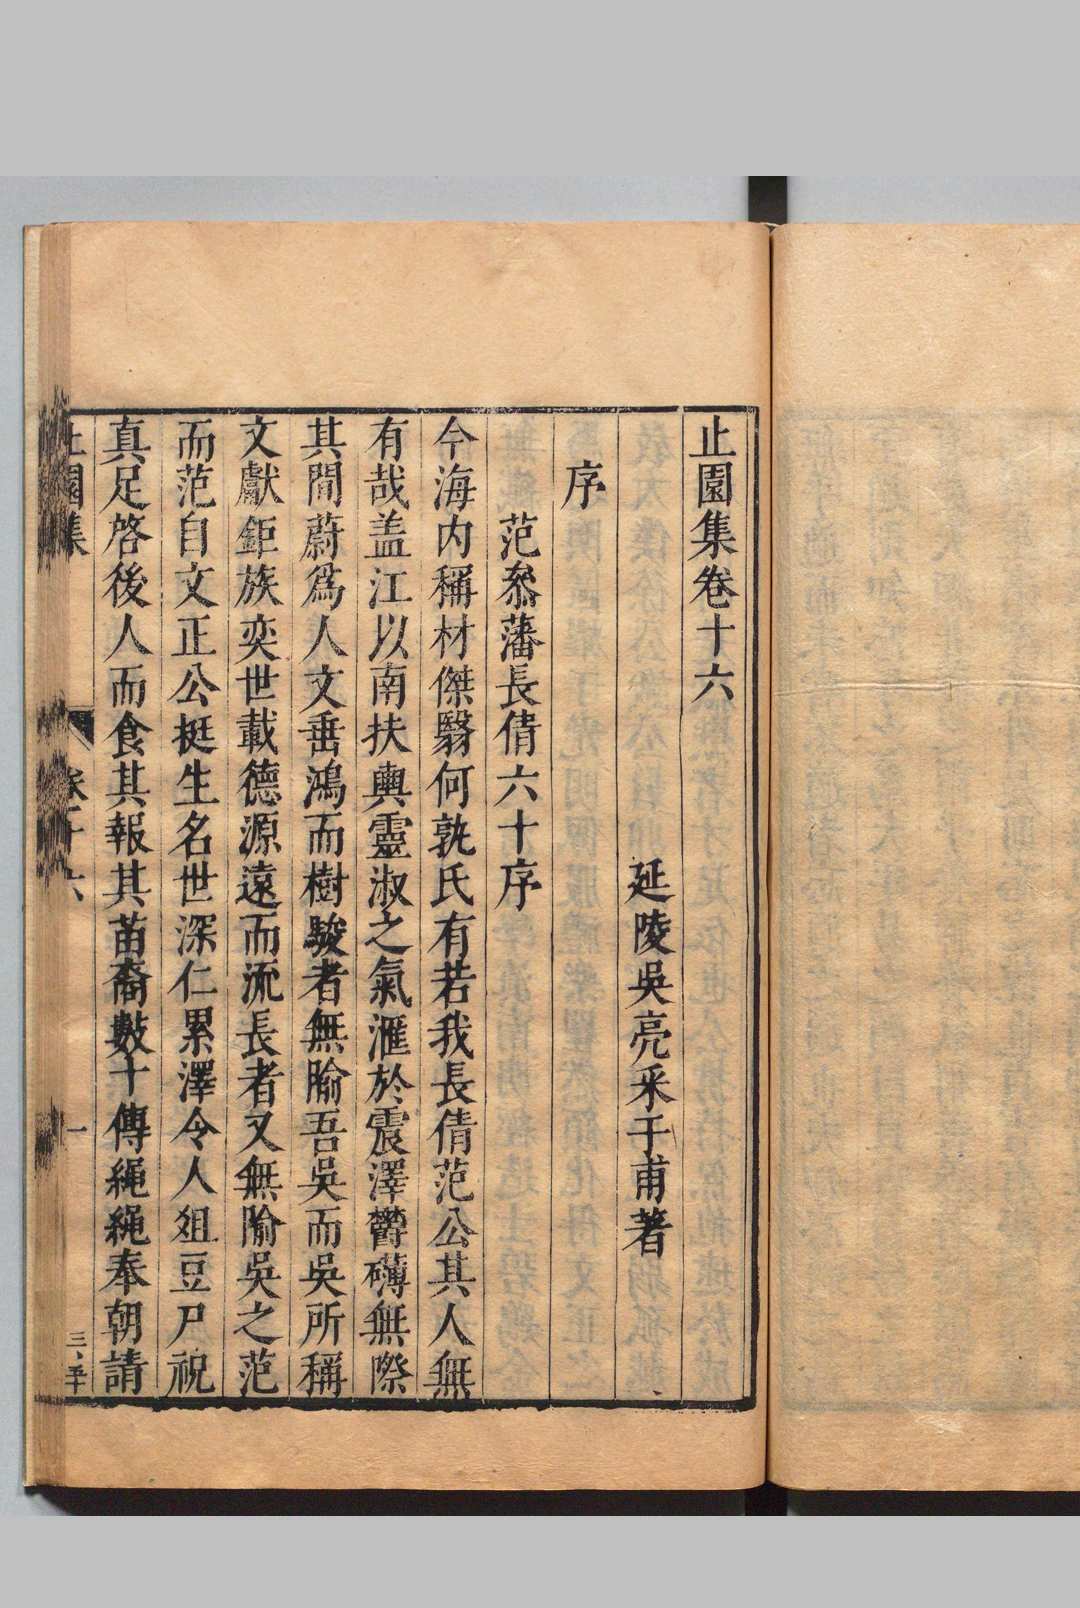 止園集卷十六
延陵吳亮采于甫著
序
范叅藩長倩六十序
今海内稱材傑翳何孰氏有若我長倩范公其人無
有哉盖江以南扶輿靈淑之氣滙於震澤鬱礴無際
其間蔚爲人文垂鴻而樹駿者無腧吾吳而吳所稱
文獻鉅族奕世載德源遠而流長者又無隃吳之范
而范自文正公挺生名世深仁累澤令人俎豆尸祝
真足啓後人而食其報其苗裔數十傳繩繩奉朝請
止園集 卷十六 一